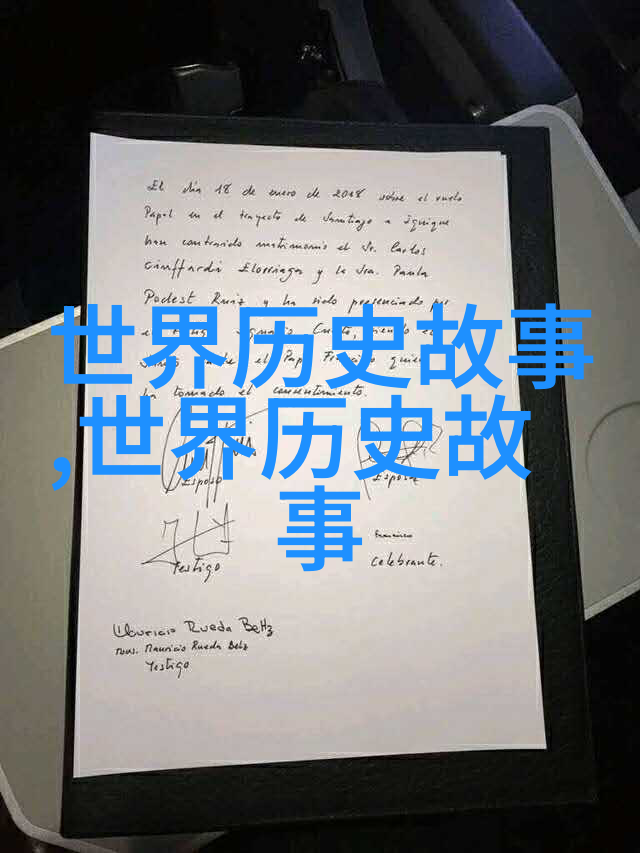 El día 18 de enero de 2018 sobre el vuelo
Papal en el trayecto de Santiago a Iquique
han contraido matrimonio el Sr. Carlos
Ciuffardi Elorriaga y la Sra. Paula
Podest Ruiz y ha sido presenciado por
世界历史故事
Ignacio Cueto, siendo el
el Papa Francisco quien
ha tomado el consentimiento.
,世界历史故
事
Esposo
Esposa
Francisco
Testigo
Celebrante.
Mauricio Rueda Beltz
Mons. Mauricio Rueda Beltz
Testigo